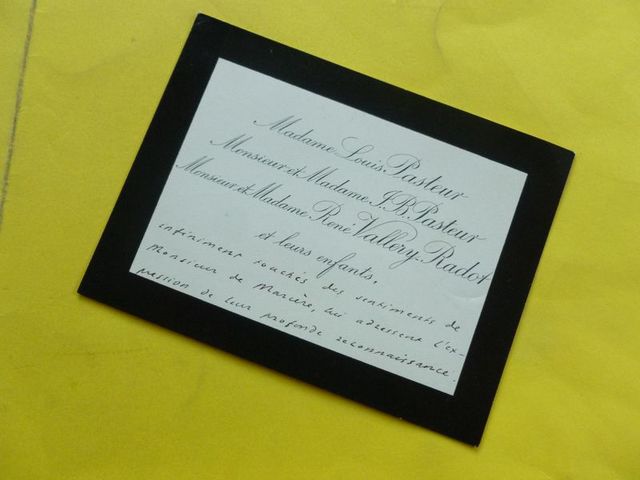 Madame Louis Pasteur
Monsieur et Madame J. B. Pasteur
Monsieur et Madame René Vallery-Radot
et leurs enfants,
infiniment touchés des sentiments de
Monsieur de Marcère, lui adressent l'ex-
pression de leur profonde reconnaissance.